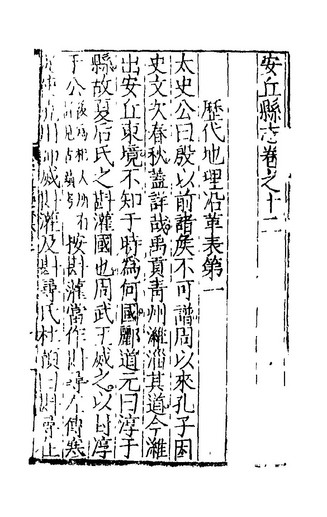 安丘縣志卷之十二
歷代地理沿革表第一
太史公曰殷以前諸矦不可譜周以來孔子因
史文次春秋蓋詳哉禹貢青州濰淄其道今濰
出安丘東境不知于時為何國酈道元曰淳于
縣故夏后氏之斟灌國也周武王以封淳
于公 按斟灌當作斟尋左傳寒
滅斟灌及斟尋氏杜預曰斟尋